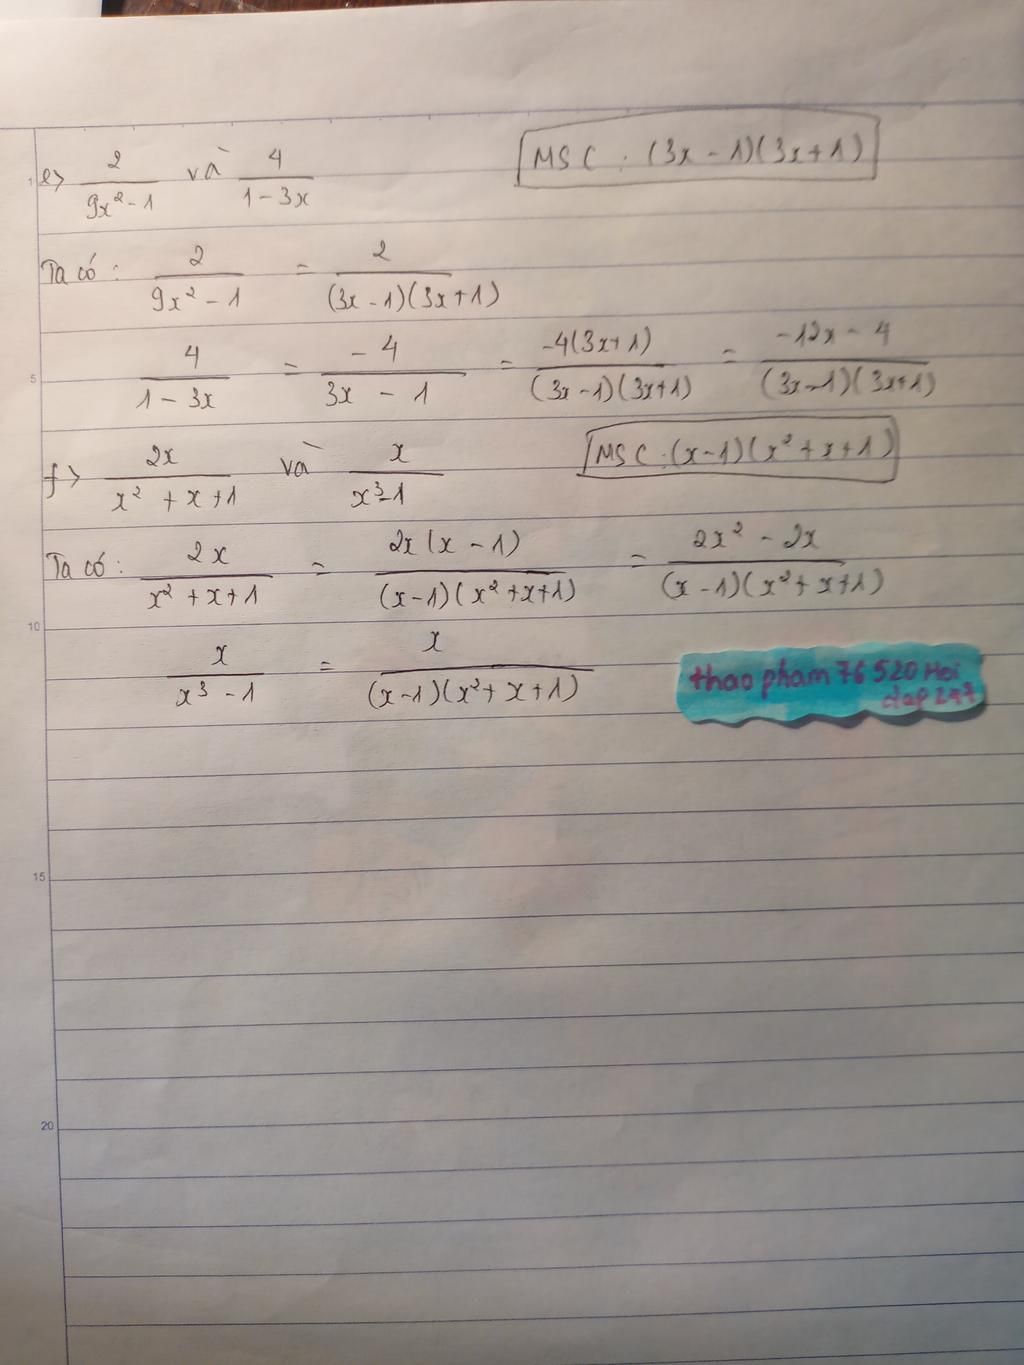 e> 2/(9x² - 1) và 4/(1 - 3x) MSC : (3x - 1)(3x + 1)
1
Ta có : 2/(9x² - 1) = 2/((3x - 1)(3x + 1))
4/(1 - 3x) = -4/(3x - 1) = -4(3x + 1)/((3x - 1)(3x + 1)) = (-12x - 4)/((3x - 1)(3x + 1))
5
f> 2x/(x² + x + 1) và x/(x³ - 1) MSC : (x - 1)(x² + x + 1)
Ta có : 2x/(x² + x + 1) = 2x(x - 1)/((x - 1)(x² + x + 1)) = (2x² - 2x)/((x - 1)(x² + x + 1))
10
x/(x³ - 1) = x/((x - 1)(x² + x + 1))
thao pham 76 520 Hoi
dap 247
15
20